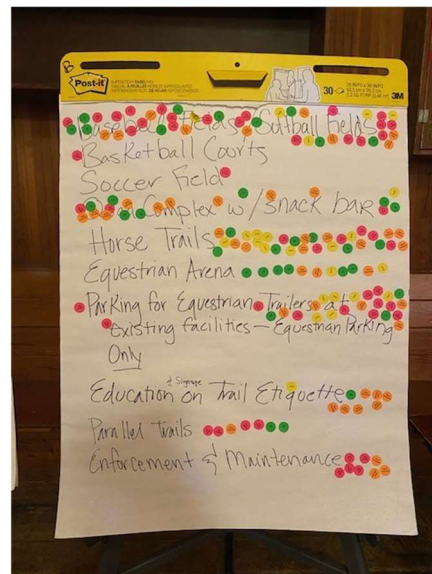 B
Post-it
30
3M
Baseball Fields Softball Fields
Basketball Courts
Soccer Field
Complex w/ snack bar
Horse Trails
Equestrian Arena
Parking for Equestrian Trailers at
existing facilities - Equestrian Parking
Only
Education & Signage on Trail Etiquette
Parallel Trails
Enforcement & Maintenance